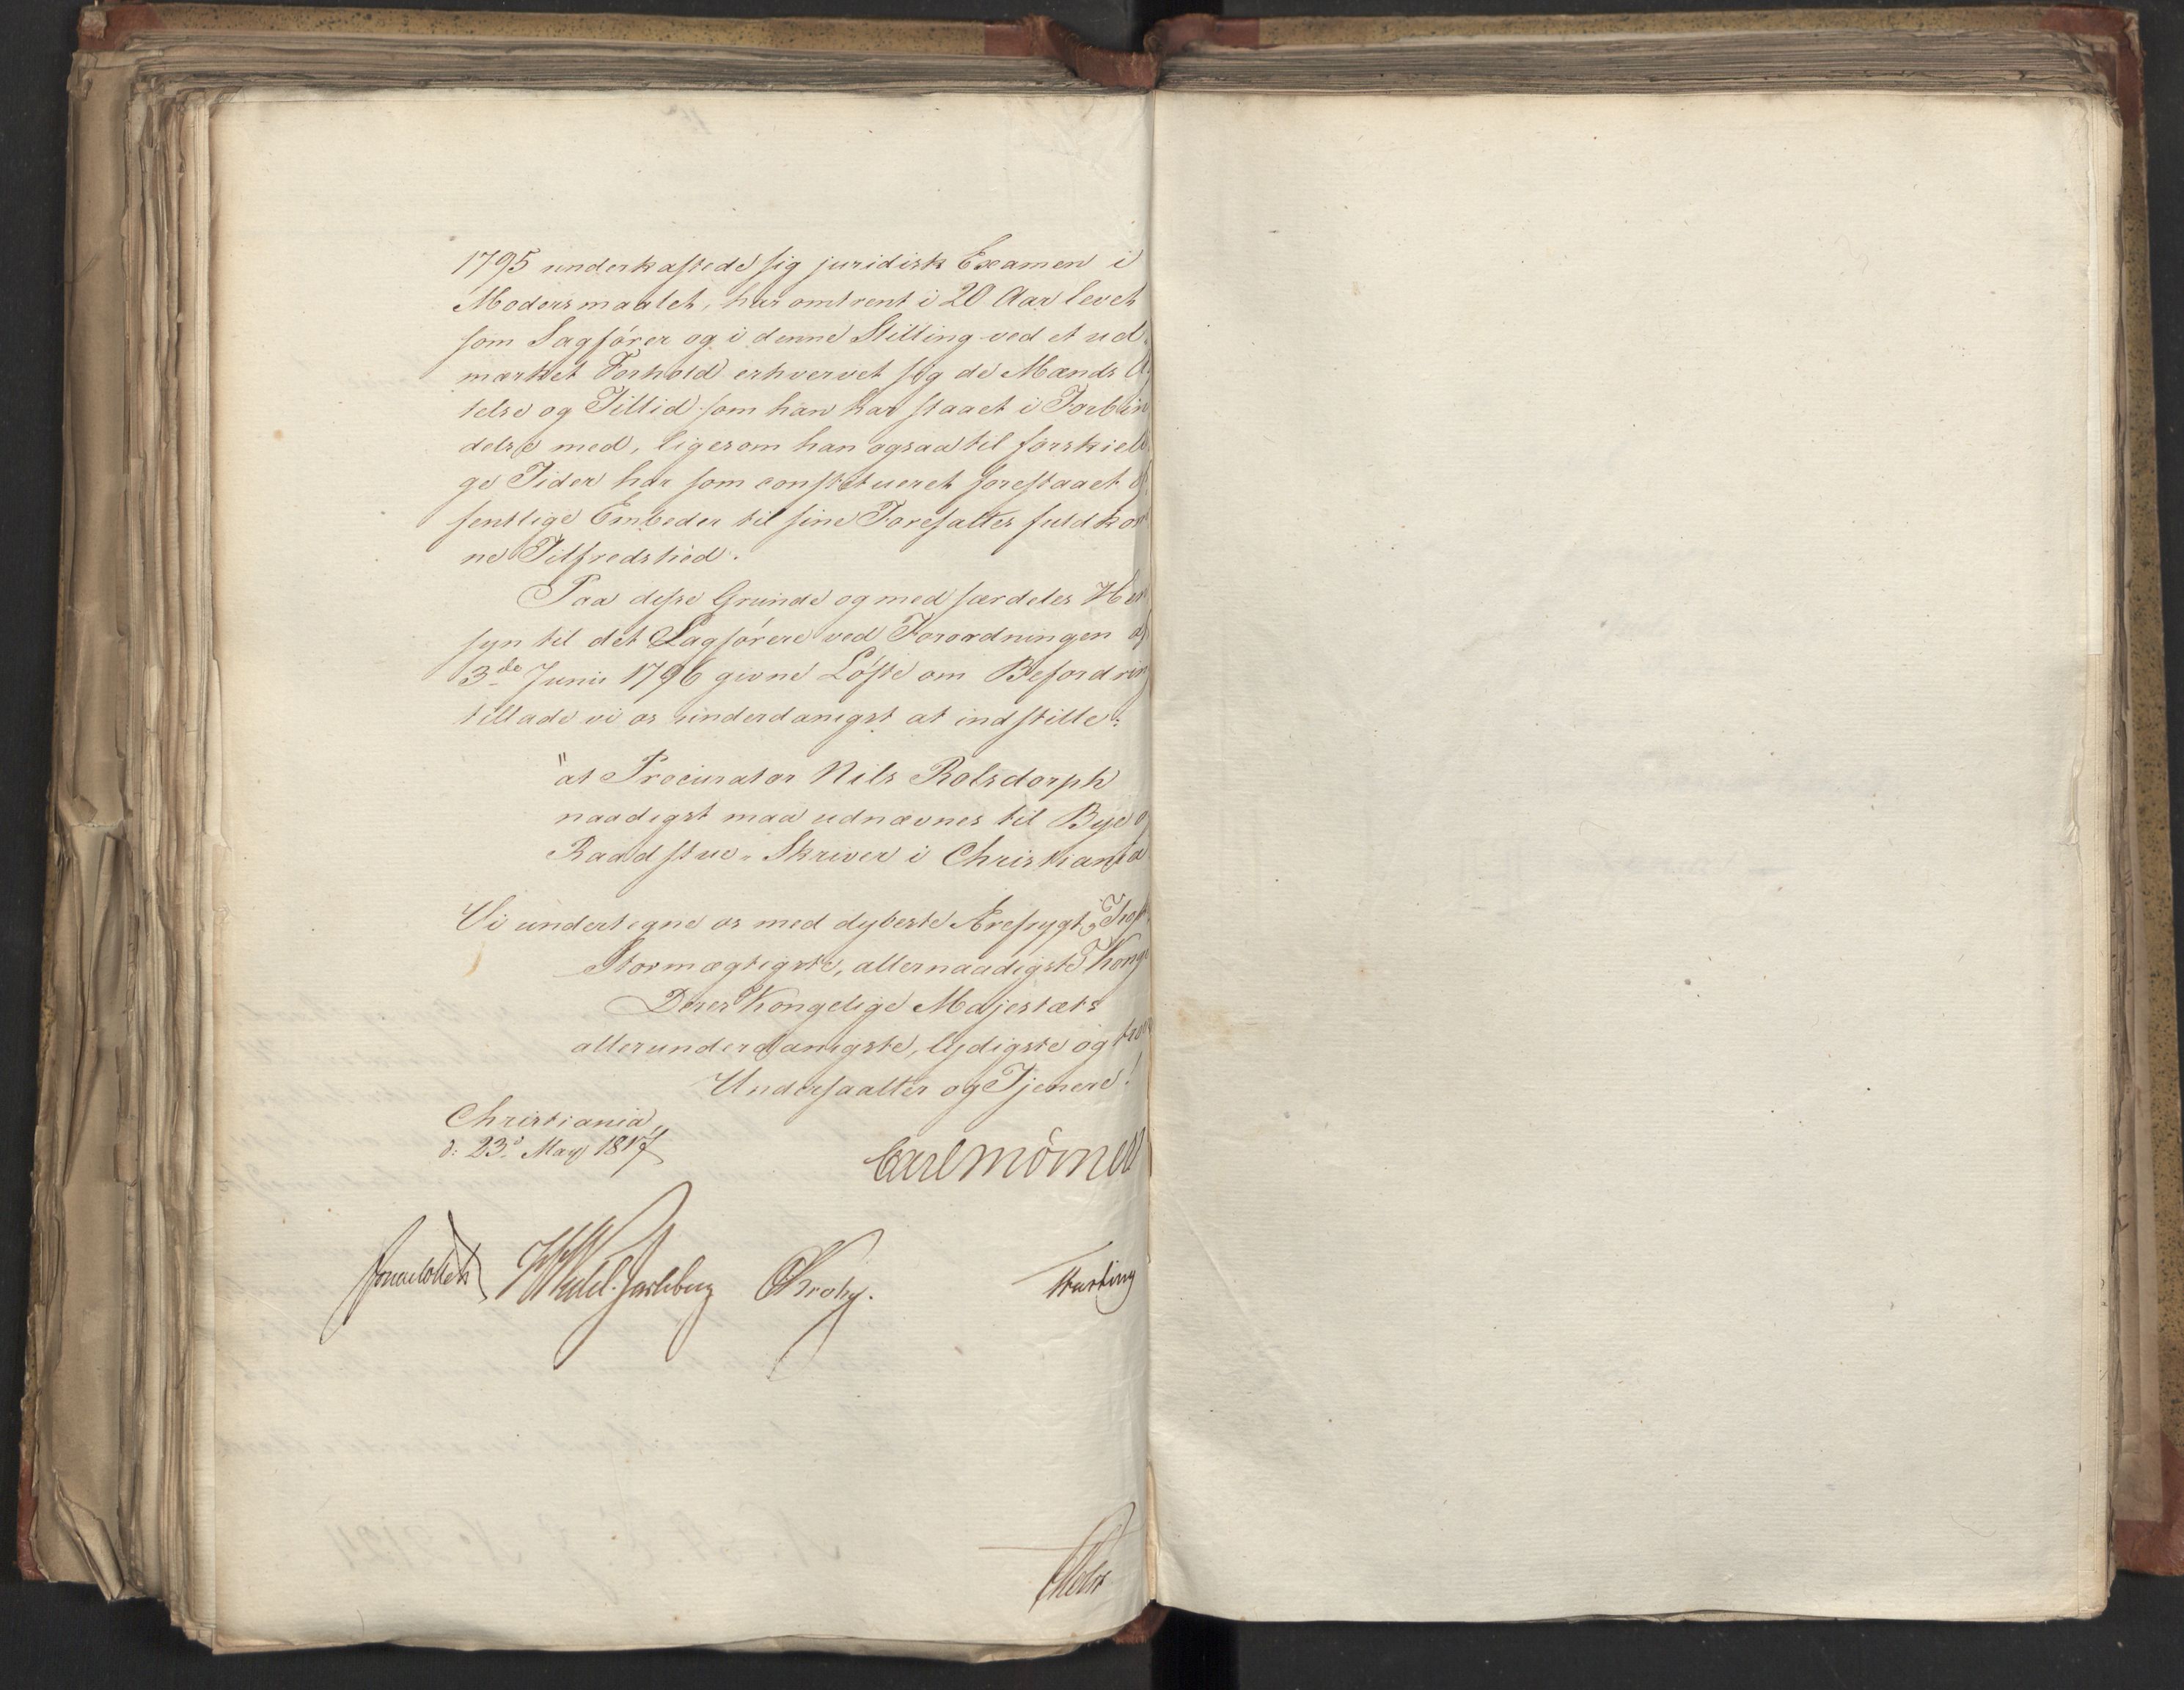 1795 underkastede sig juridisk Examen i
Modersmaalet, har omtrent i 20 Aar levet
som Sagfører og i denne Stilling ved et ud
mærket Forhold erhvervet sig de Mænds
telse og Tillid som han har staaet i Forbin
delse med, ligesom han ogsaa til forskiel
ge Tider har som constitueret forestaaet of
fentlige Embeder til sine Foresattes fuldkom
ne Tilfredshed.
Paa disse Grunde og med særdeles Hen
syn til det Sagførere ved Forordningen af
3de Junii 1796 givne Løfte om Befordring
tillade vi os underdanigst at indstille:
"at Procurator Nils Rolsdorph
naadigst maa udnævnes til Bye og
Raadstue-Skriver i Christiania
Vi undertegne os med dybeste Ærefrygt,
Stormægtigste, allernaadigste Konge
Deres Kongelige Majestæts
allerunderdanigste, lydigste og troe
Undersaatter og Tjenere!
Christiania,
d: 23d May 1817
Carl Mörner
Sommerhielm HWedel-Jarlsberg CKrohg. Hartung
Holst